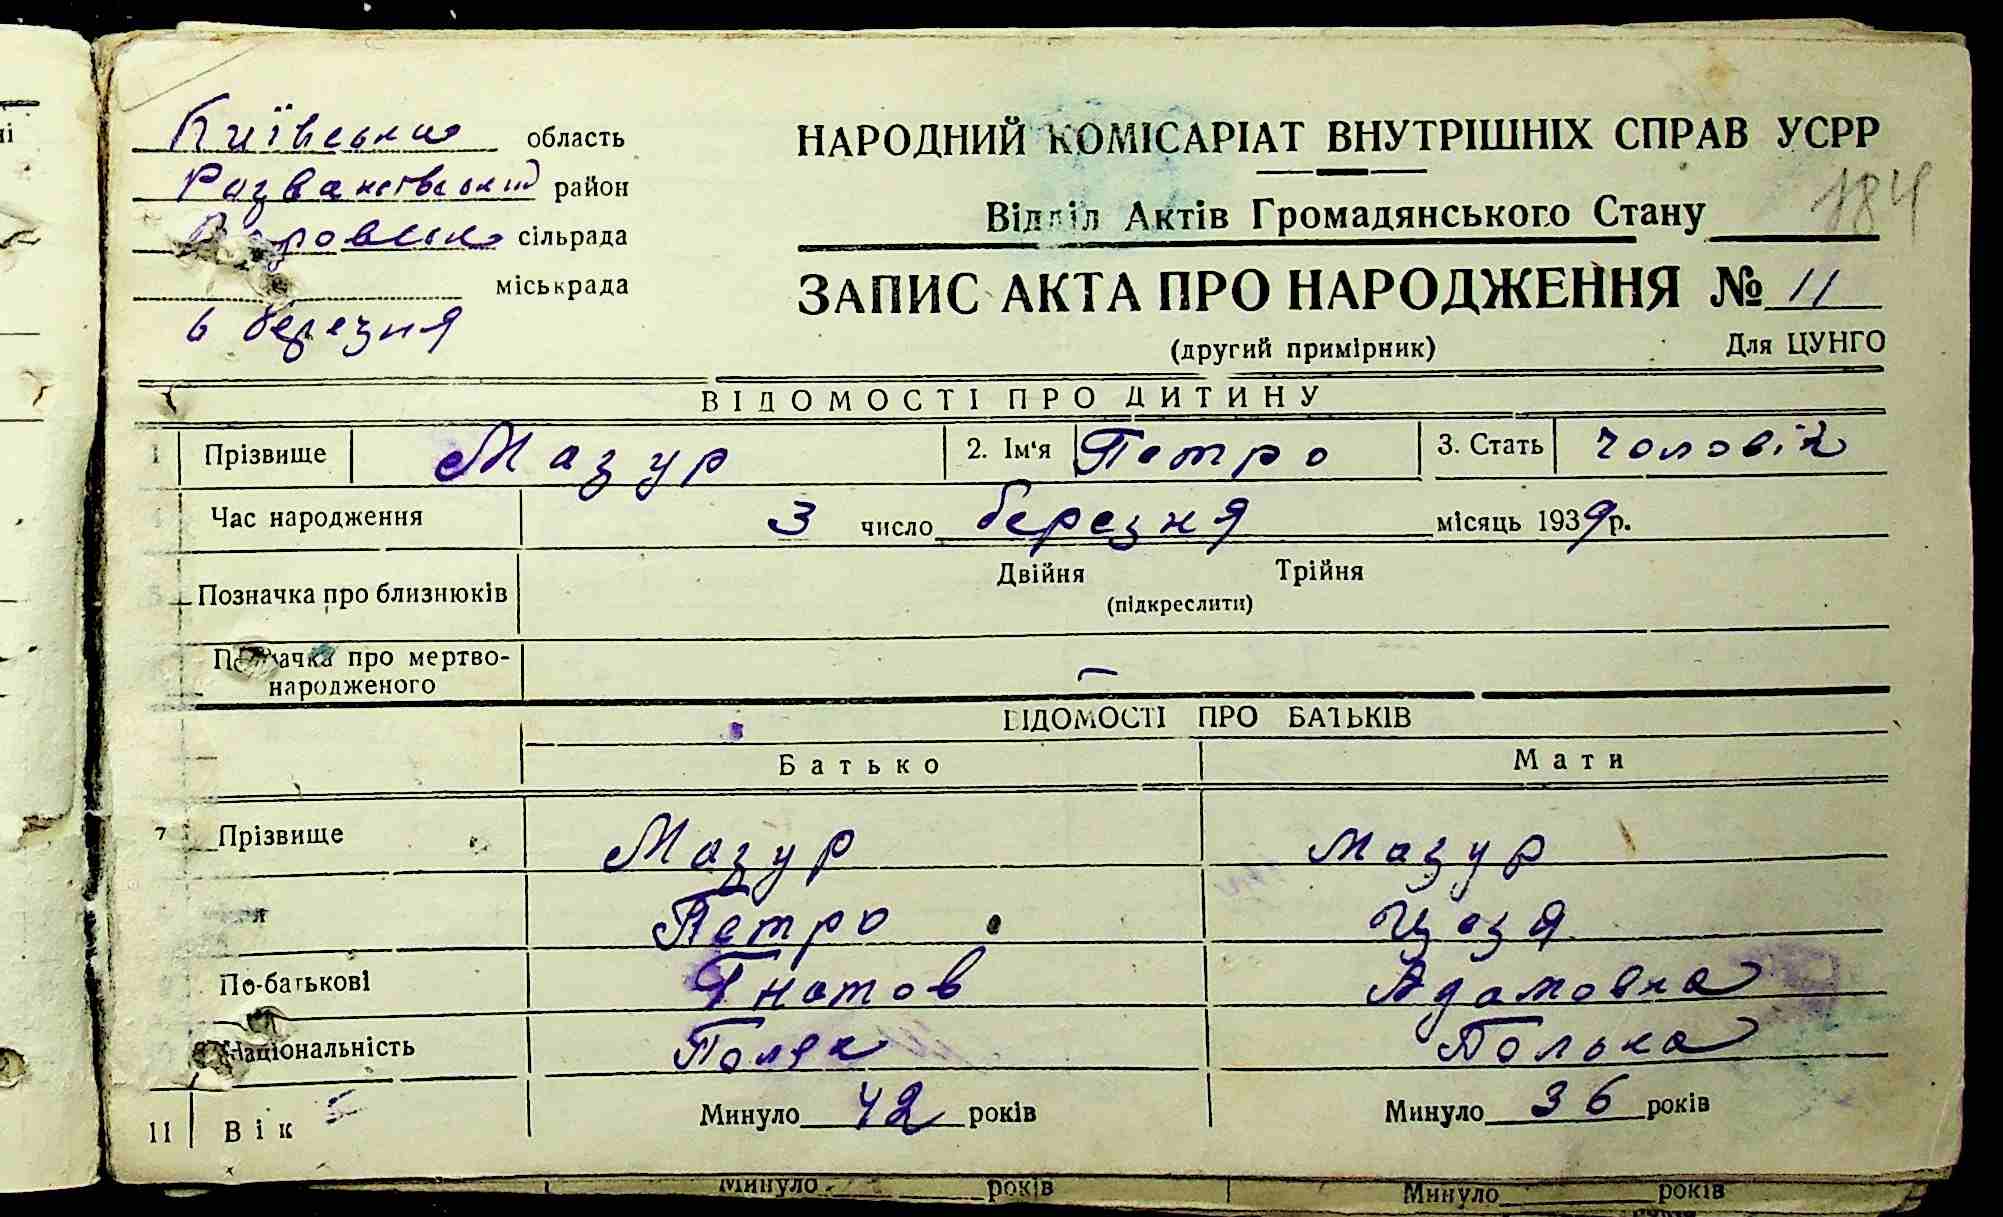 Київська область
район
сільрада
міськрада
6 березня
НАРОДНИЙ КОМІСАРІАТ ВНУТРІШНІХ СПРАВ УСРР
184
Відділ Актів Громадянського Стану
ЗАПИС АКТА ПРО НАРОДЖЕННЯ № 11
(другий примірник) Для ЦУНГО
ВІДОМОСТІ ПРО ДИТИНУ
1 Прізвище Мазур 2. Ім'я Петро 3. Стать чоловік
4 Час народження 3 число березня місяць 1939р.
5 Позначка про близнюків Двійня Трійня
(підкреслити)
Позначка про мертво-
народженого —
ВІДОМОСТІ ПРО БАТЬКІВ
Батько Мати
7 Прізвище Мазур Мазур
Петро Цезя
По-батькові Гнатов Адамовна
Національність Поляк Полька
11 Вік Минуло 42 років Минуло 36 років
Минуло років Минуло років